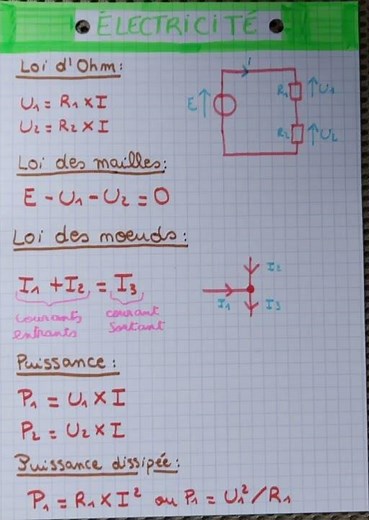 ÉLECTRICITÉ
Loi d'Ohm:
U1 = R1 × I
U2 = R2 × I
I
E
R1
U1
R2
U2
Loi des mailles:
E - U1 - U2 = 0
Loi des noeuds:
I1 + I2 = I3
courants entrants
courant sortant
I2
I1
I3
Puissance:
P1 = U1 × I
P2 = U2 × I
Puissance dissipée:
P1 = R1 × I² ou P1 = U1²/R1